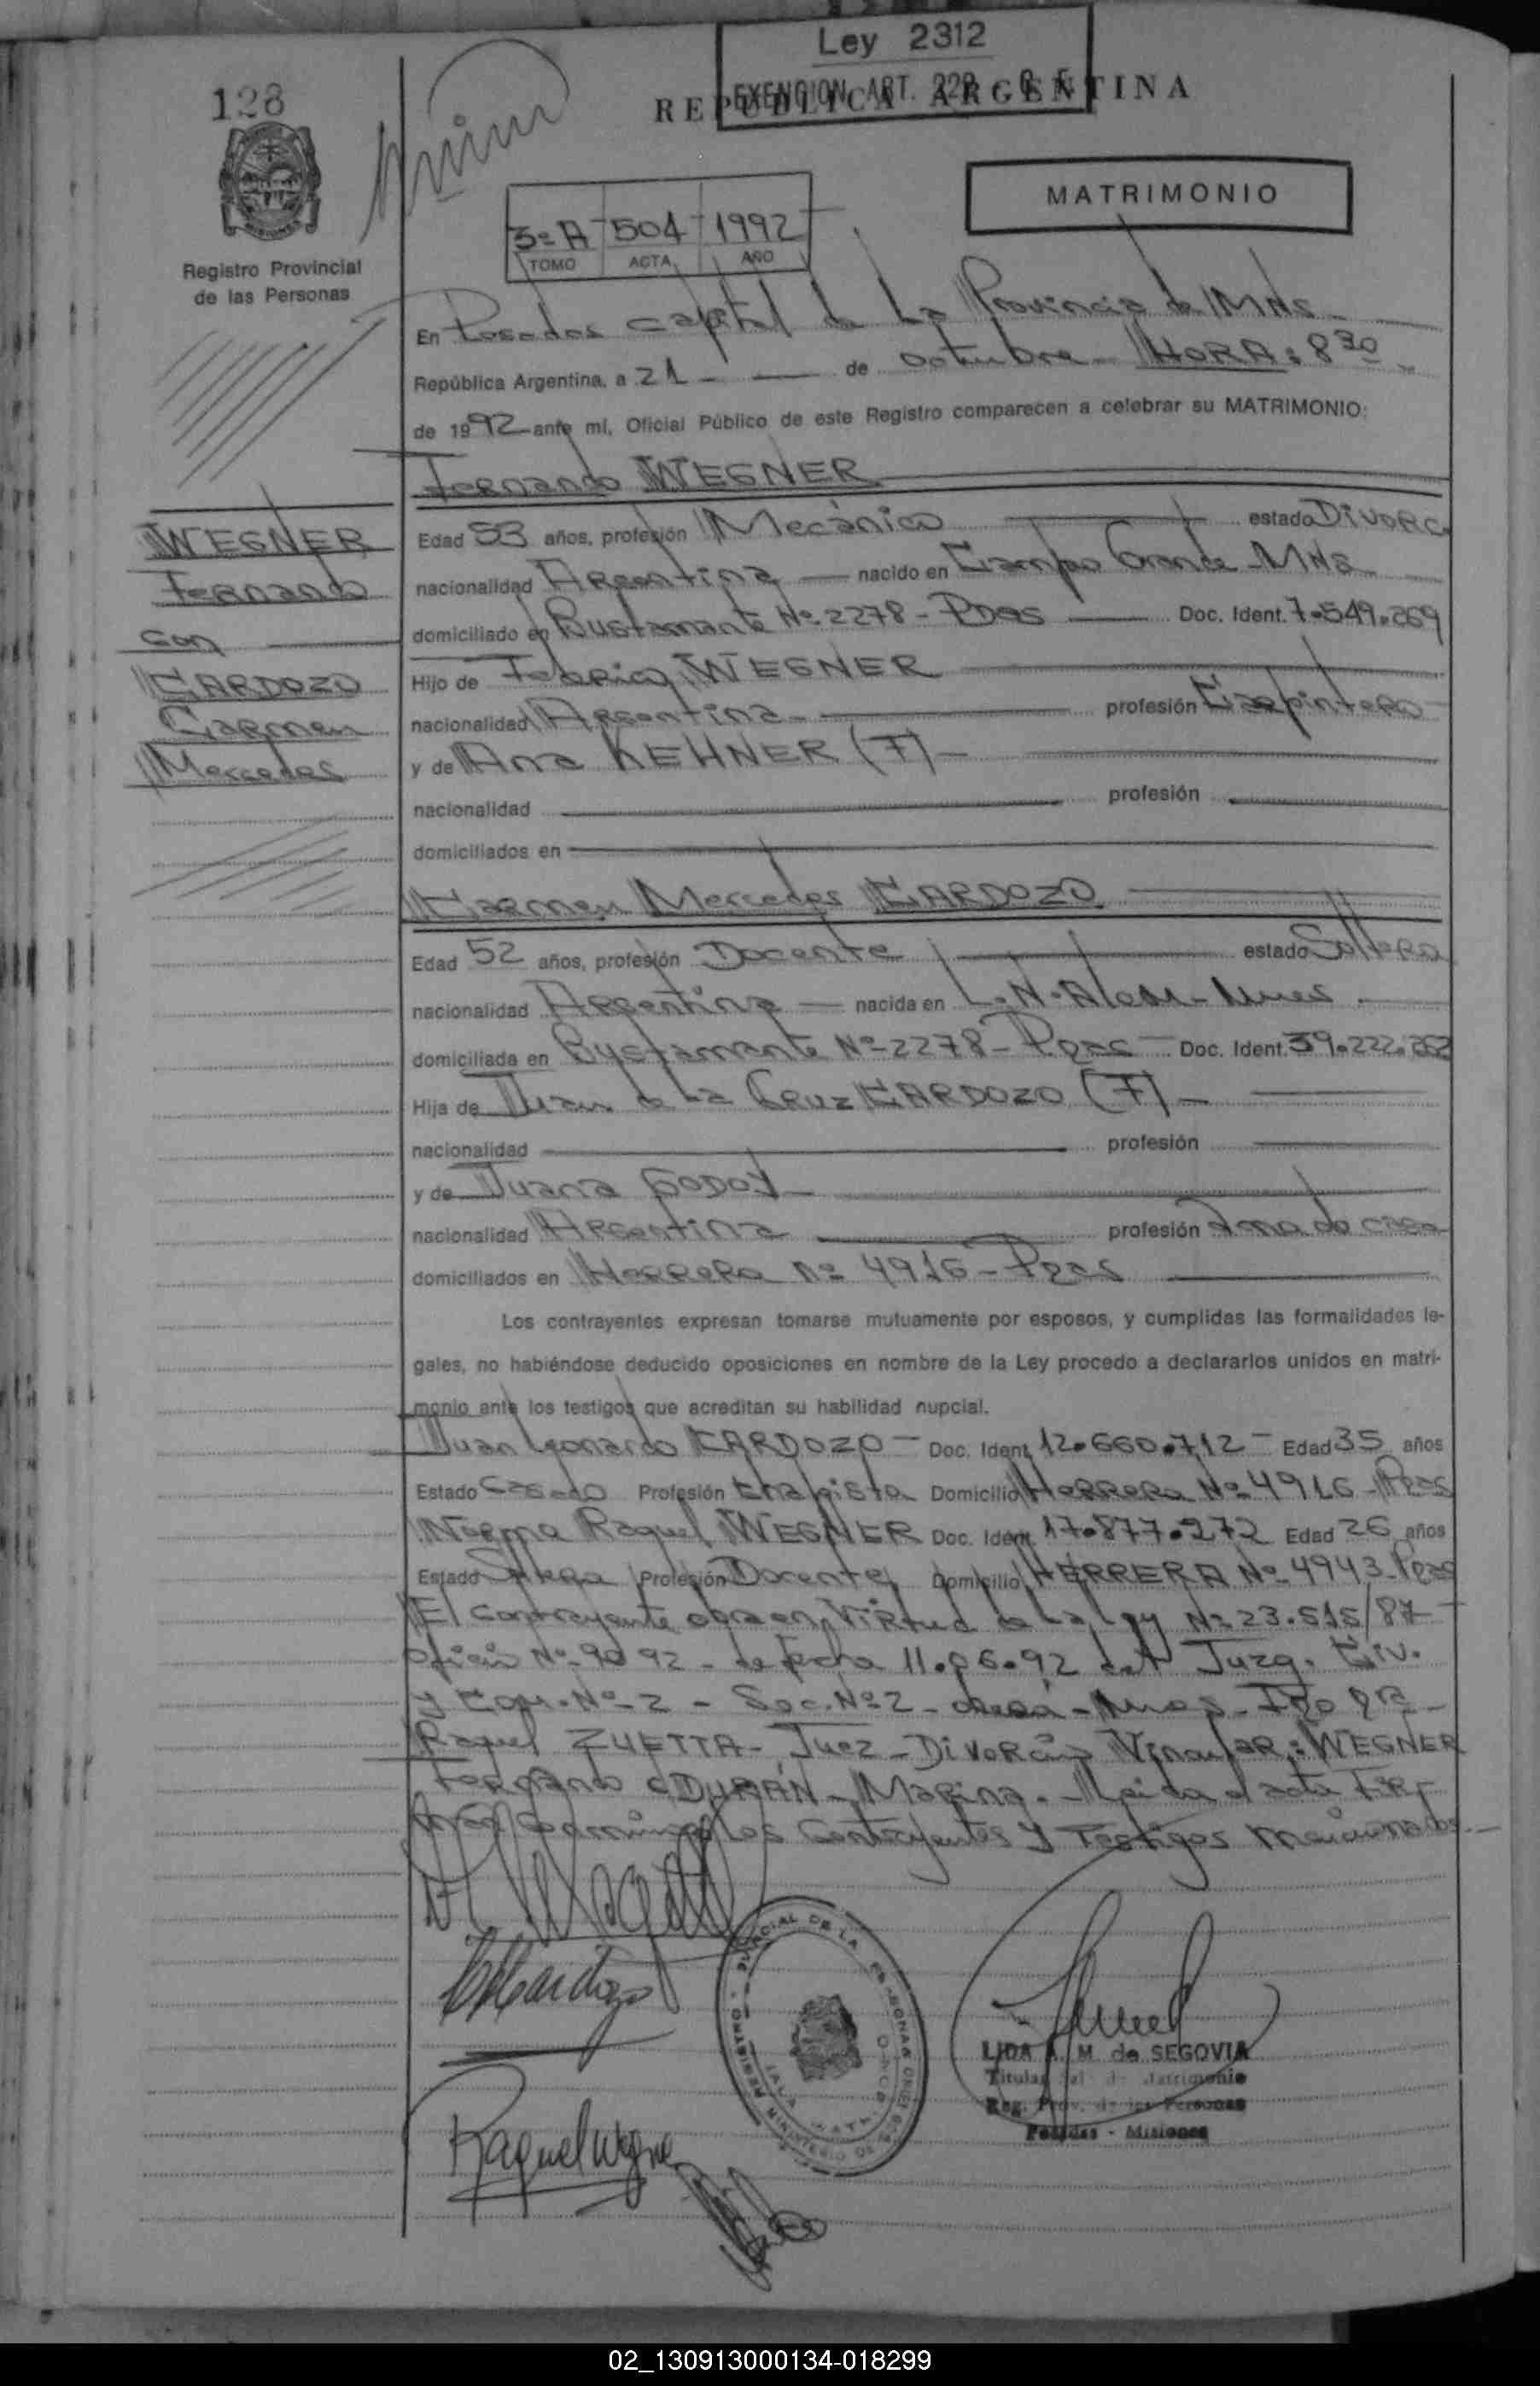 128
Ley 2312
EXENCION ART. 229
REPUBLICA ARGENTINA
MATRIMONIO
3º A 504 1992
TOMO ACTA AÑO
Registro Provincial
de las Personas
En Posadas capital de La Provincia de Mnes
República Argentina, a 21 de octubre HORA: 8 30
de 1992 ante mí, Oficial Público de este Registro comparecen a celebrar su MATRIMONIO:
Fernando WEGNER
WEGNER
Fernando
con
CARDOZO
Carmen
Mercedes
Edad 53 años, profesión Mecánico estado Divorc
nacionalidad Argentina nacido en Campo Grande - Mns
domiciliado en Bustamante Nº 2278 - Pdas Doc. Ident. 7.549.269
Hijo de WEGNER
nacionalidad Argentina profesión Carpintero
y de Ana KEHNER (F)
nacionalidad profesión
domiciliados en
Carmen Mercedes CARDOZO
Edad 52 años, profesión Docente estado Soltera
nacionalidad Argentina nacida en L. N. Alem -
domiciliada en Bustamante Nº 2278 - Pdas Doc. Ident.
Hija de Juan de La Cruz CARDOZO (F)
nacionalidad profesión
y de Juana GODOY
nacionalidad Argentina profesión Ama de casa
domiciliados en Herrera Nº 4916 - Pdas
Los contrayentes expresan tomarse mutuamente por esposos, y cumplidas las formalidades le-
gales, no habiéndose deducido oposiciones en nombre de la Ley procedo a declararlos unidos en matri-
monio ante los testigos que acreditan su habilidad nupcial.
Juan Leonardo CARDOZO - Doc. Ident. 12.660.712 - Edad 35 años
Estado Casado Profesión Domicilio Herrera Nº 4916 - Pdas
Norma Raquel WEGNER Doc. Ident. 17.877.272 Edad 26 años
Estado Soltera Profesión Docente Domicilio HERRERA Nº 4943 - Pdas
El contrayente obra en Virtud de La Ley Nº 23.515/87
Oficio Nº 92 - de fecha 11.06.92 del Juzg. Civ.
y Com. Nº 2 - Sec. Nº 2 -
Raquel ZUETTA - Juez - Divorcio Vincular: WEGNER
Fernando c/ DURÁN - Marina. - Leida el acta Fir-
man conmigo los Contrayentes y Testigos mencionados.-
Raquel Wegner
LIDA M. de SEGOVIA
Titular de Matrimonio
Reg. Prov. de las Personas
Posadas - Misiones
02_130913000134-018299